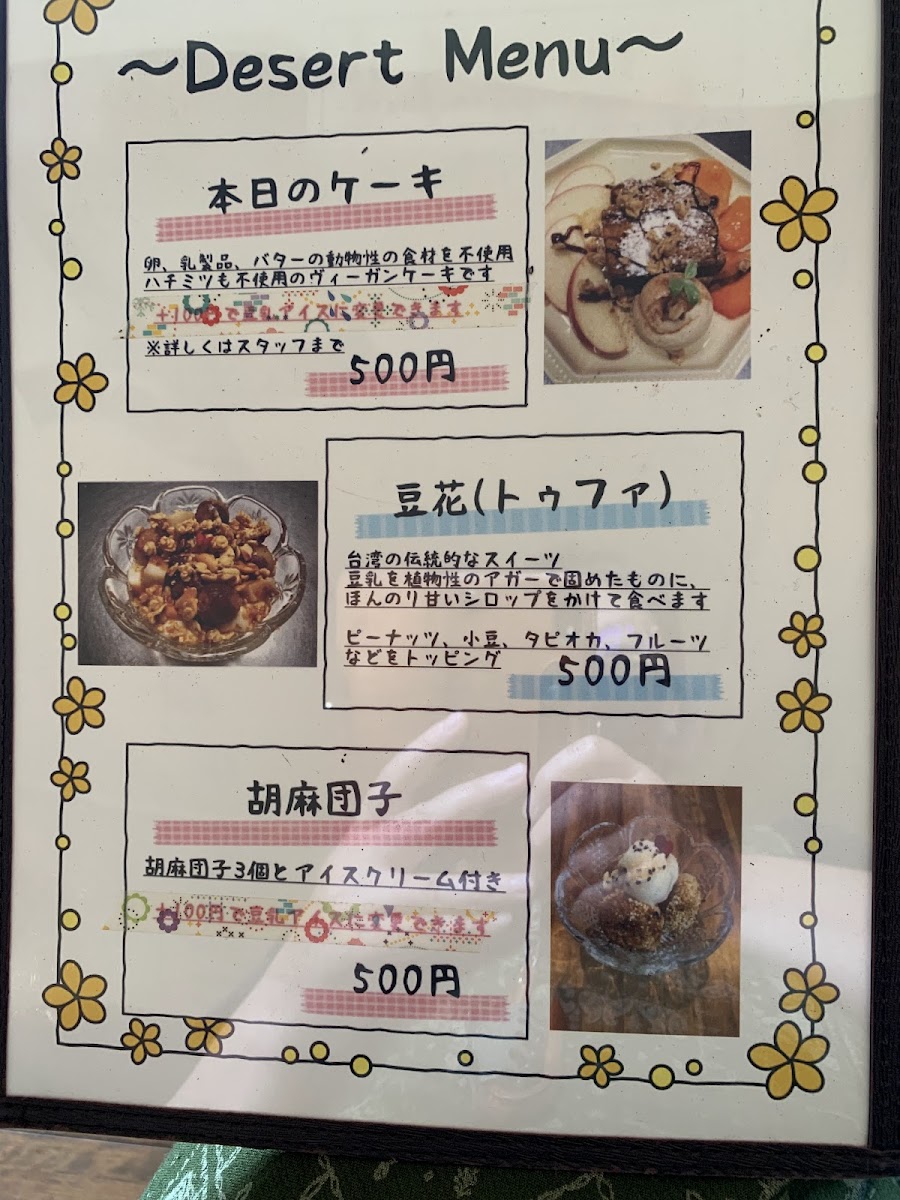 ～Desert Menu～
本日のケーキ
卵、乳製品、バターの動物性の食材を不使用
ハチミツも不使用のヴィーガンケーキです
+100円で豆乳アイスに変更できます
※詳しくはスタッフまで
500円
豆花(トゥファ)
台湾の伝統的なスイーツ
豆乳を植物性のアガーで固めたものに、
ほんのり甘いシロップをかけて食べます
ピーナッツ、小豆、タピオカ、フルーツ
などをトッピング
500円
胡麻団子
胡麻団子3個とアイスクリーム付き
+100円で豆乳アイスに変更できます
500円